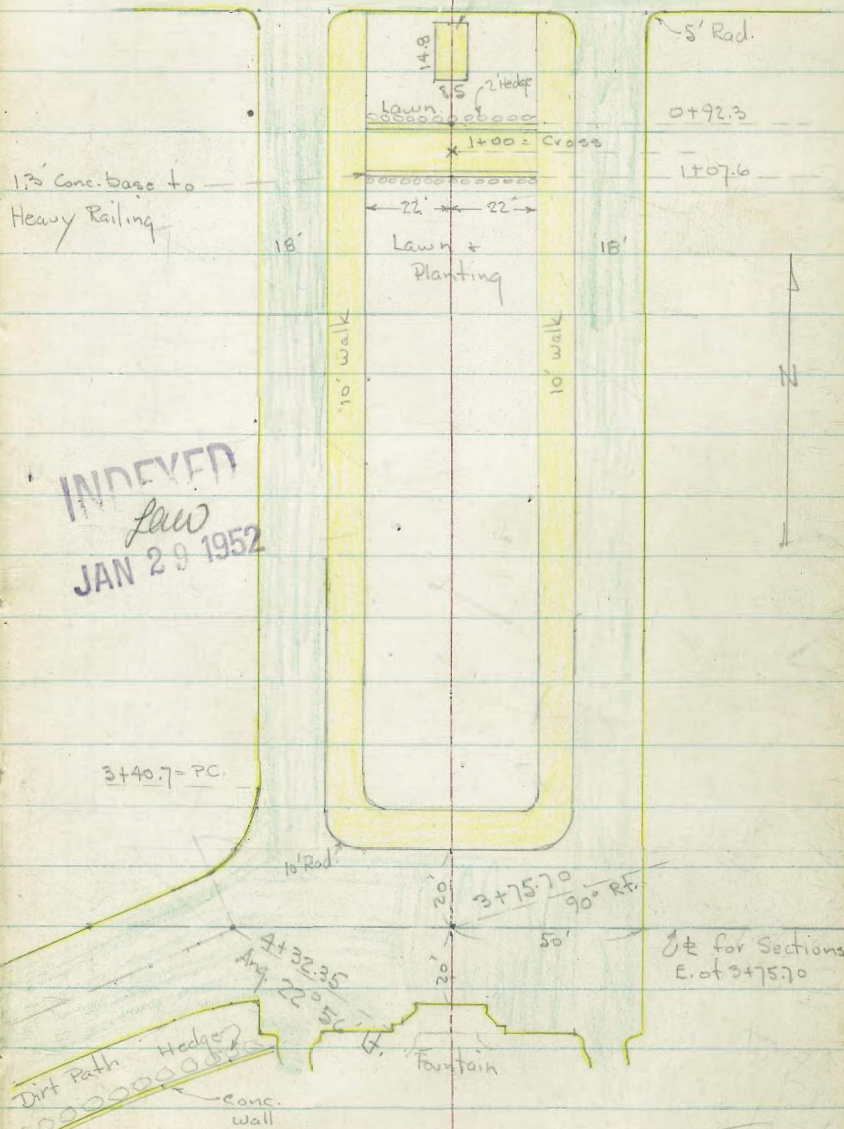 5' Rad.
14.8
8.5
2' Hedge
Lawn
0+92.3
1+00 = Cross
1+07.6
1.3' Conc. base to
Heavy Railing
22' 22'
18'
Lawn &
Planting
18'
10' walk
10' walk
N
INDEXED
JAN 29 1952
3+40.7 = P.C.
10' Rad.
20'
3+75.70
90° Rt.
50'
℄ for Sections
E. of 3+75.70
4+32.35
Ang. 22° 56'
Lt.
20'
Fountain
Dirt Path
Hedge
Conc.
wall